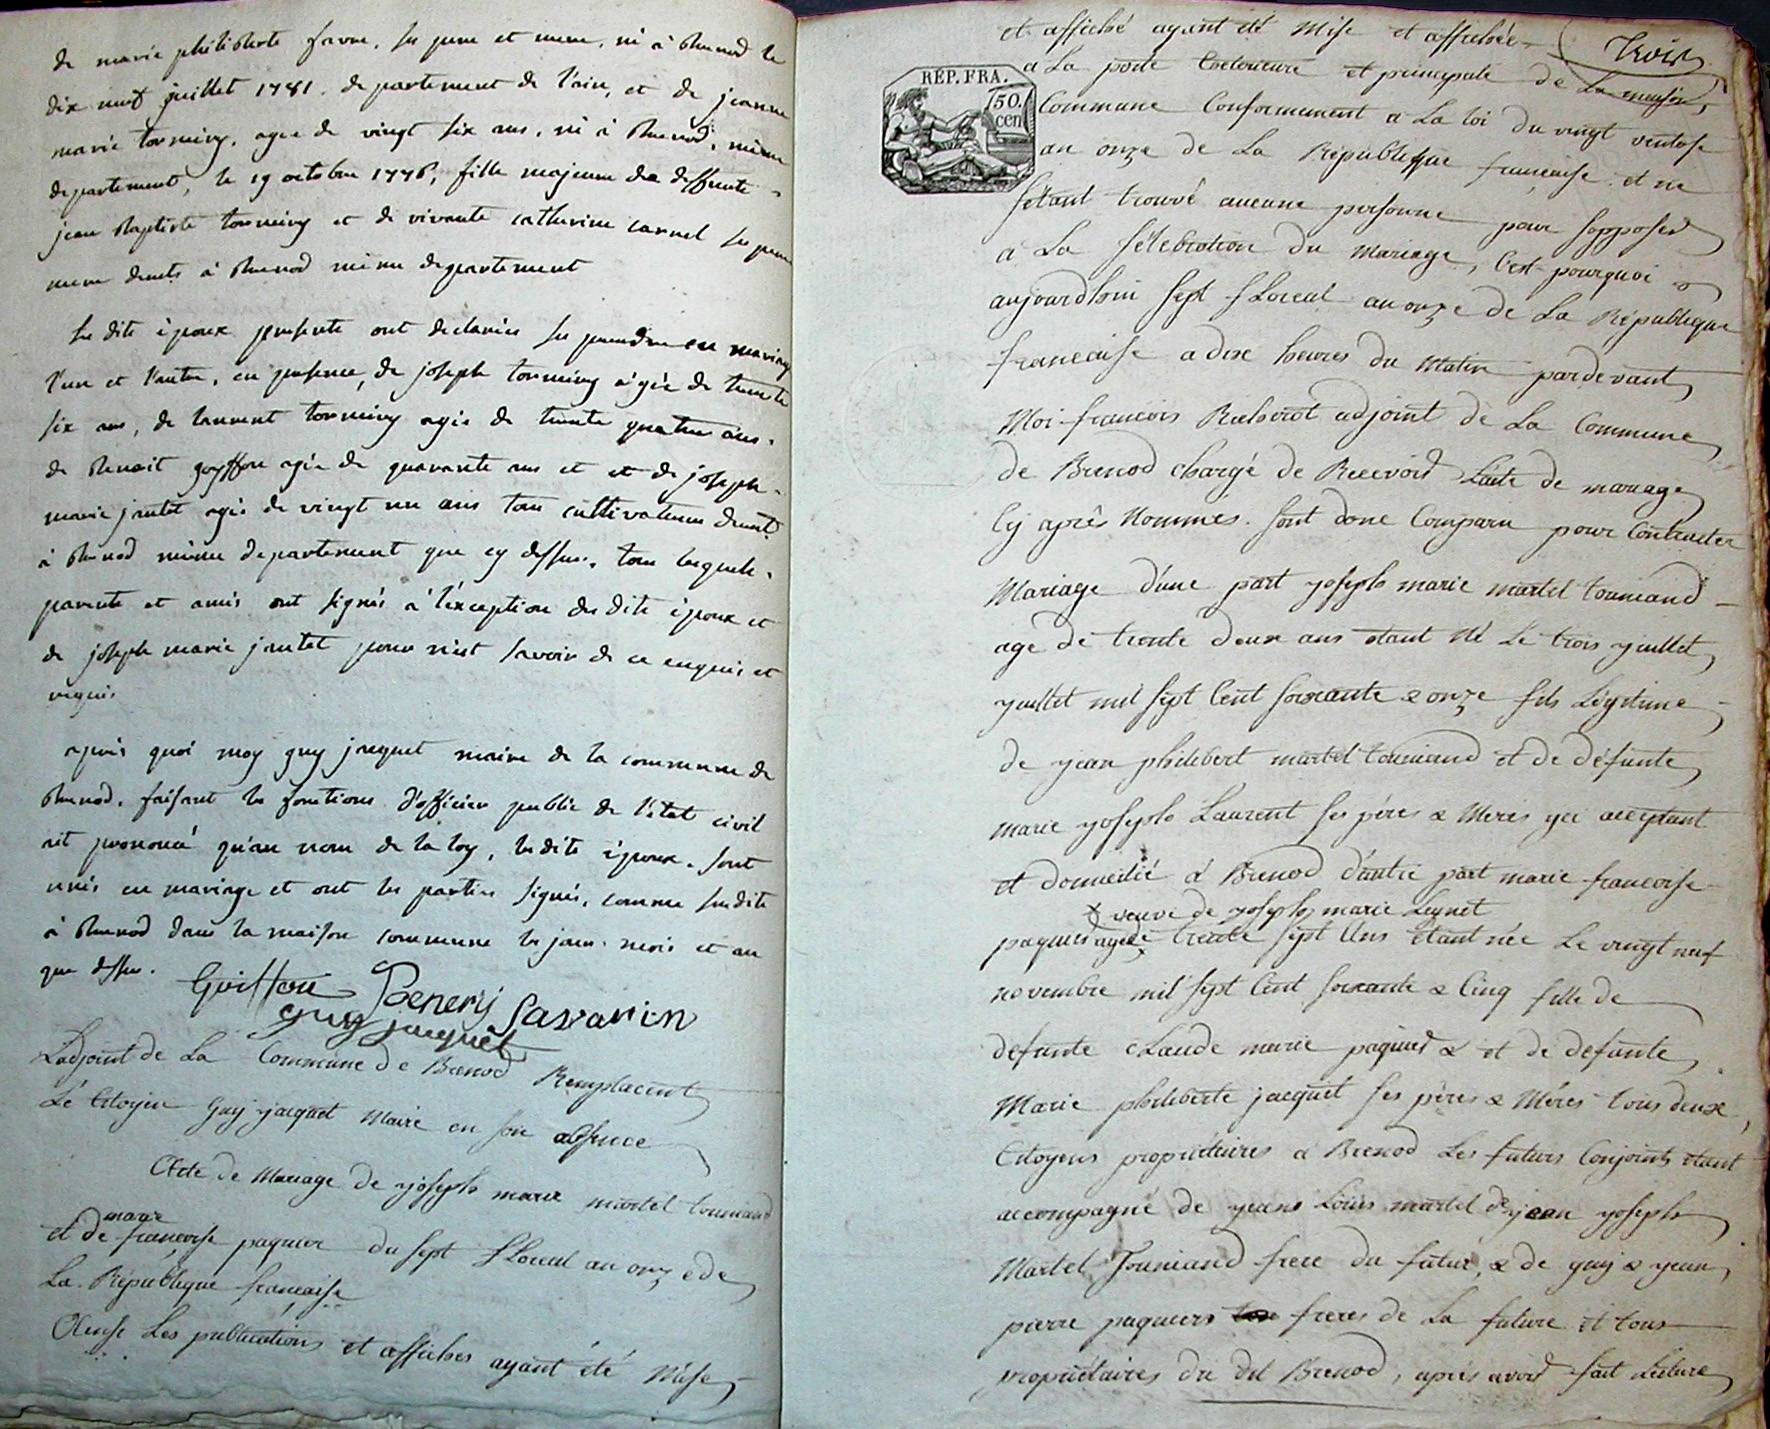 de marie philiberte favre, ses pere et mere, né à Brenod le
dix neuf juillet 1781. departement de l'ain, et de jeanne
marie tornéiry, agee de vingt six ans, né à Brenod, même
departement, le 19 octobre 1776, fille majeure de deffunte
jean Baptiste tornéiry et de vivante catherine carrel ses pere
mere demts à Brenod même departement
les dits époux presents ont declarées se prendre en mariage
l'un et l'autre, en presence, de joseph tornéiry agée de trente
six ans, de laurent tornéiry agés de trente quatre ans.
de Benoit goyffon agée de quarante ans et et de joseph
marie jantet agés de vingt un ans tous cultivateurs demt
à Brenod même departement que cy dessus. tous lesquels
parents et amis ont signés à l'éxception des dits époux et
de joseph marie jantet pour n'est savoir de ce enquis et
requis
après quoi moy guy jacquet maire de la commune de
Brenod. faisant les fonctions d'officier public de l'état civil
ait prononcé qu'au nom de la loy, les dits époux sont
unis en mariage et ont les parties signés, comme susdits
à Brenod dans la maison commune les jour. mois et an
que dessus.
Goiffon Benery Savarin
guy jacquet
L'adjoint de La Commune de Brenod Remplacent
Le Citoyen Guy jacquet Maire en son absence
Acte de Mariage de yoseph marie martel touniand
marie
et de francoise paquier du sept fLoreal an onze de
La République francaise
Les publications et affiches ayant été Mise
Trois
et affiché ayant été Mise et affichée
RÉP. FRA.
50.
cen
a La porte Exterieure et principale de La maison
Commune Conformement a La loi du vingt ventose
an onze de La République francaise et ne
sétant trouvé aucune personne pour sopposer
a La sélebration du Mariage, C'est pourquoi
aujourdhui sept fLoreal an onze de La République
francaise a dix heures du Matin pardevant
Moi francois adjoint de La Commune
de Brenod chargé de Recevoir L'acte de mariage
Cy après Nommés. sont donc Comparu pour Contracter
Mariage d'une part yoseph marie martel touniand
age de trente deux ans etant Né Le trois yuillet
yuillet mil sept Cent soixante & onze fils Légitime
de yean philibert martel touniand et de défunte
marie yoseph Laurent ses péres & Meres yci aceptant
et domicilié à Brenod d'autre part marie francoise
x veuve de yoseph marie Leynet
paquier agée de trente sept Ans etant née Le vingt neuf
novembre mil sept Cent soixante & Cinq fille de
defunte cLaude marie paquier & et de defunte
Marie philiberte jacquet ses pères & Méres tous deux
Citoyens propriétaires a Brenod Les futurs Conjoints etant
accompagné de yean Louis martel & jean yoseph
Martel Touniand frere du futur, & de guy & yean
pierre paquiers freres de La future et tous
propriétaires du dit Brenod, après avoir fait Lecture